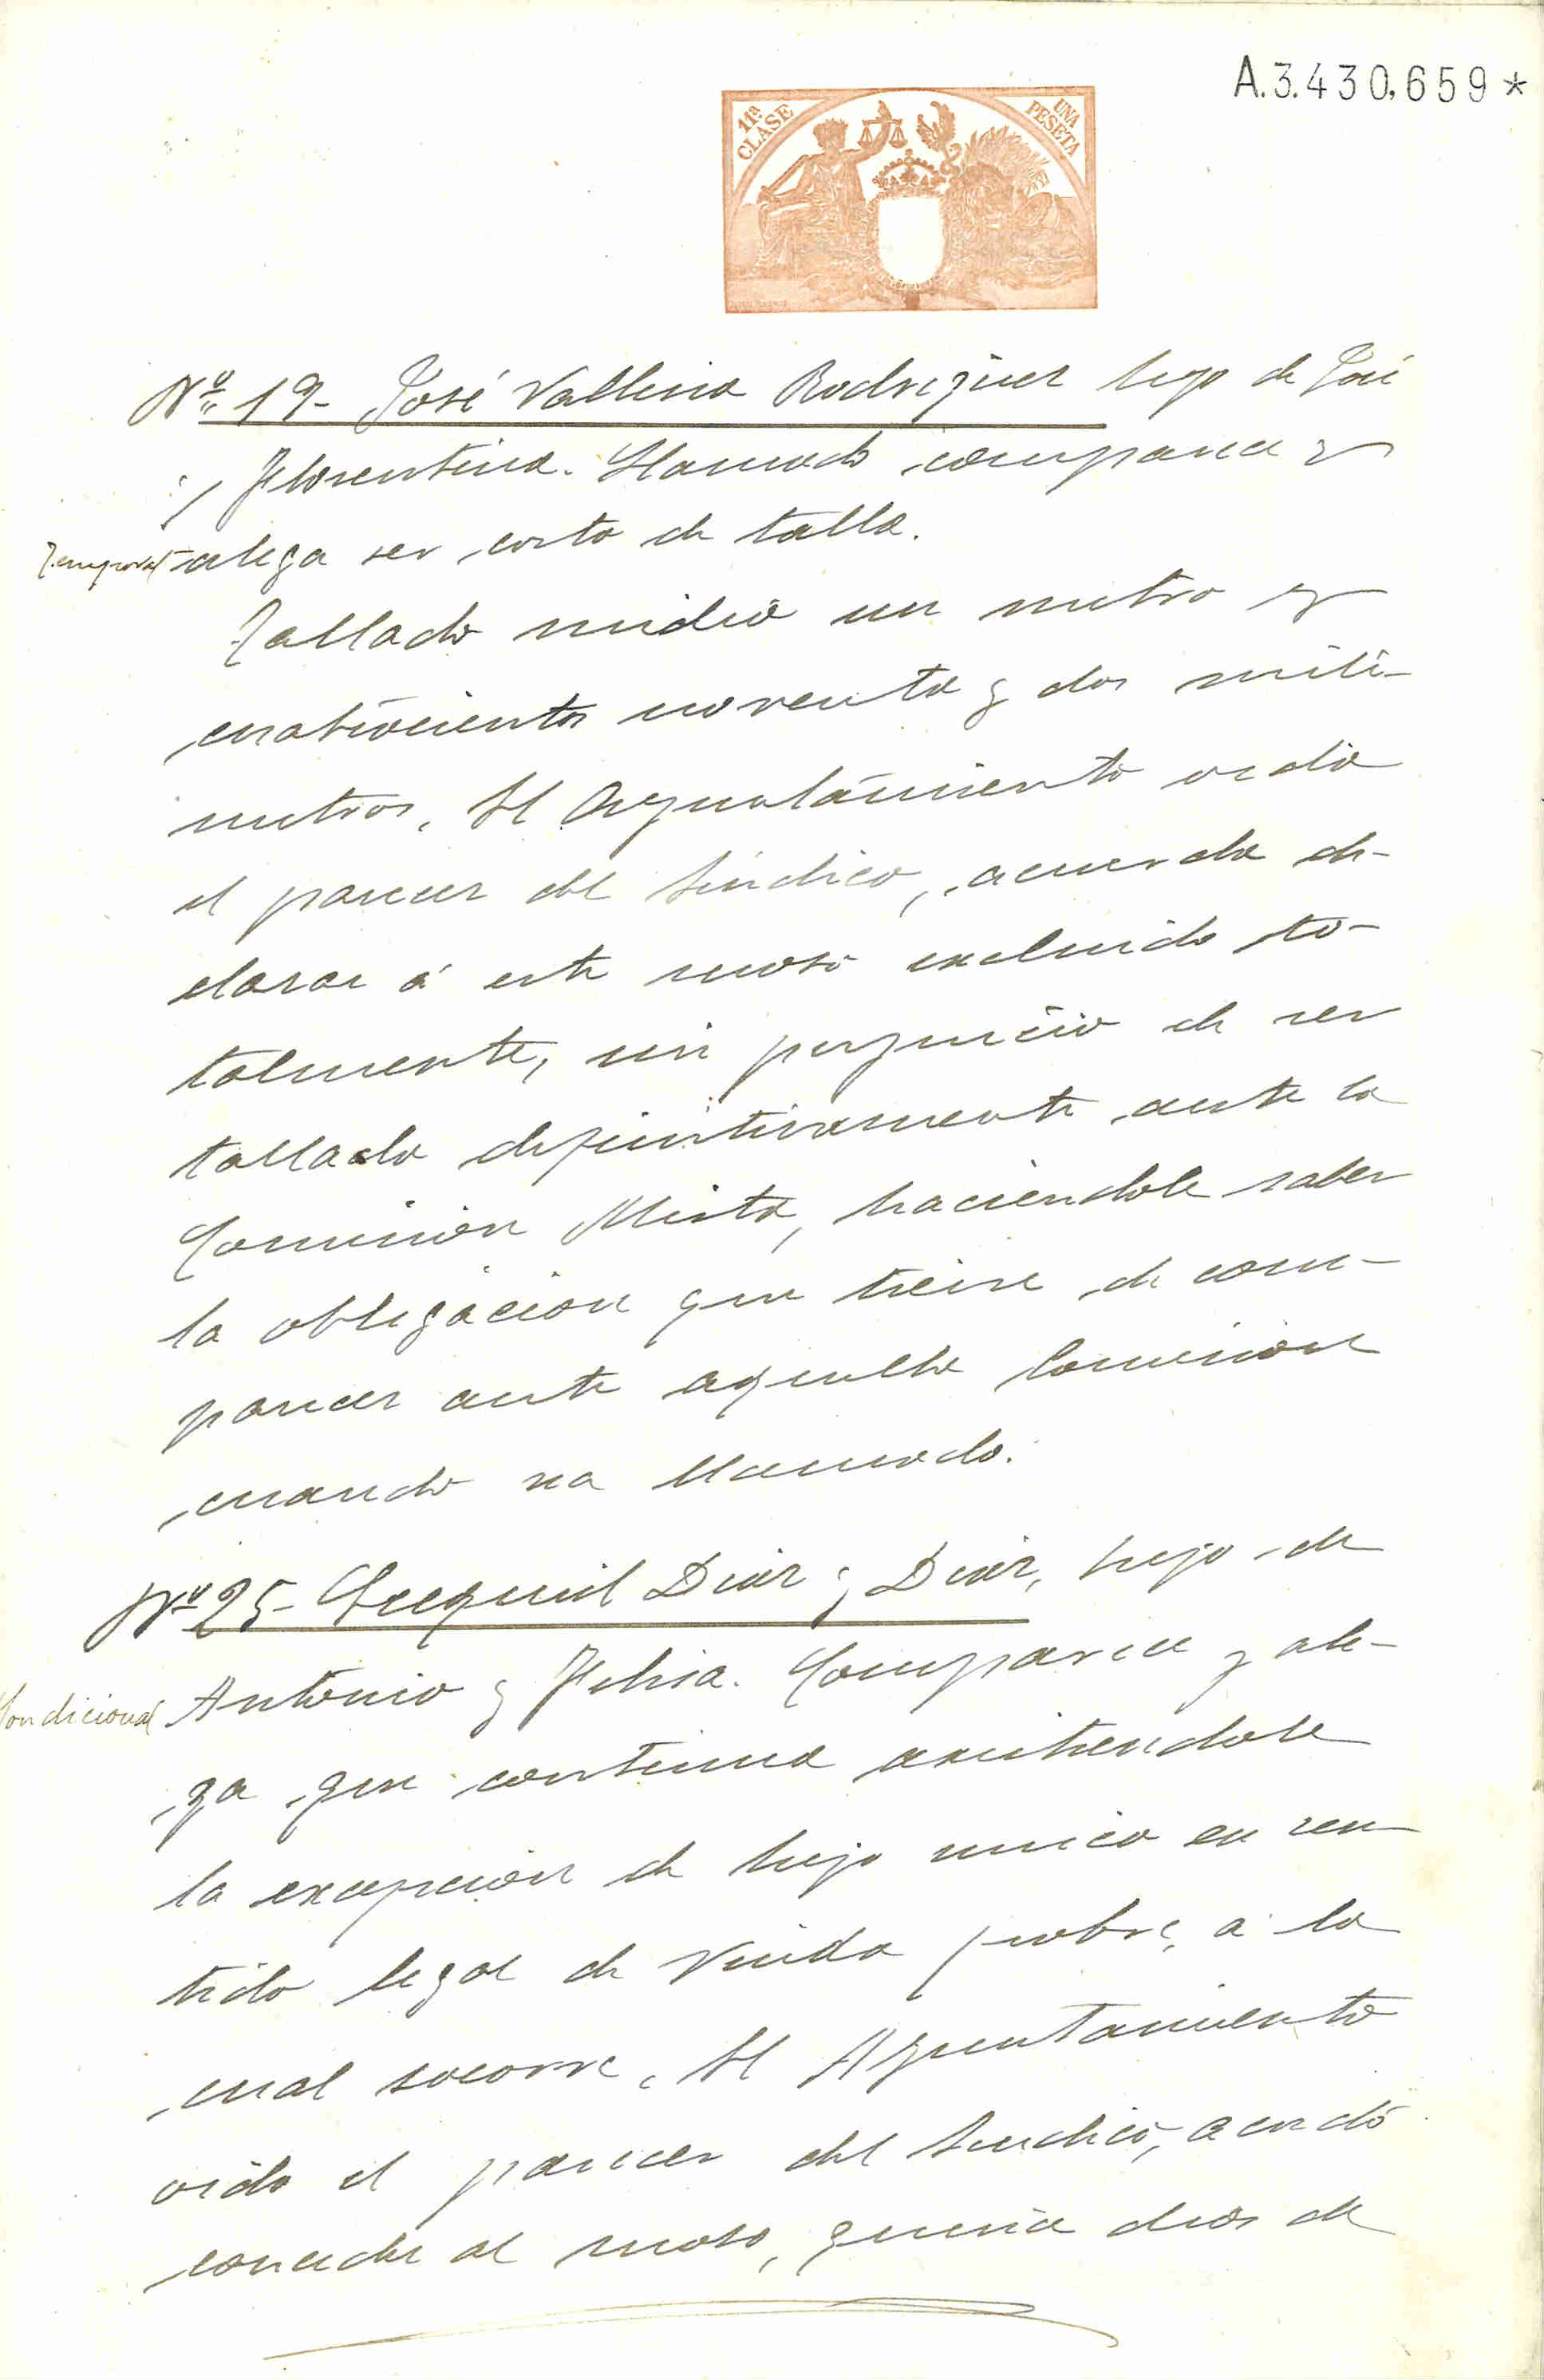 A.3.430,659*
11ª CLASE
UNA PESETA
Nº 19- José Vallina Rodriguez hijo de José
y Florentina. Llamado comparece y
Temporal
alega ser corto de talla.
Tallado midió un metro y
cuatrocientos noventa y dos mili-
metros. El Ayuntamiento oido
el parecer del Sindico, acuerda de-
clarar á este mozo excluido to-
talmente, sin perjuicio de ser
tallado definitivamente ante la
Comision Mixta, haciendole saber
la obligación que tiene de com-
parecer ante aquella Comision
cuando sea llamado.
Nº 25- Ezequiel Diaz y Diaz, hijo de
Condicional
Antonio y Felisa. Comparece y ale-
ga que continua existiendole
la excepcion de hijo unico en sen-
tido legal de viuda pobre, a la
cual socorre. El Ayuntamiento
oido el parecer del Sindico, acordó
conceder al mozo, quince dias de